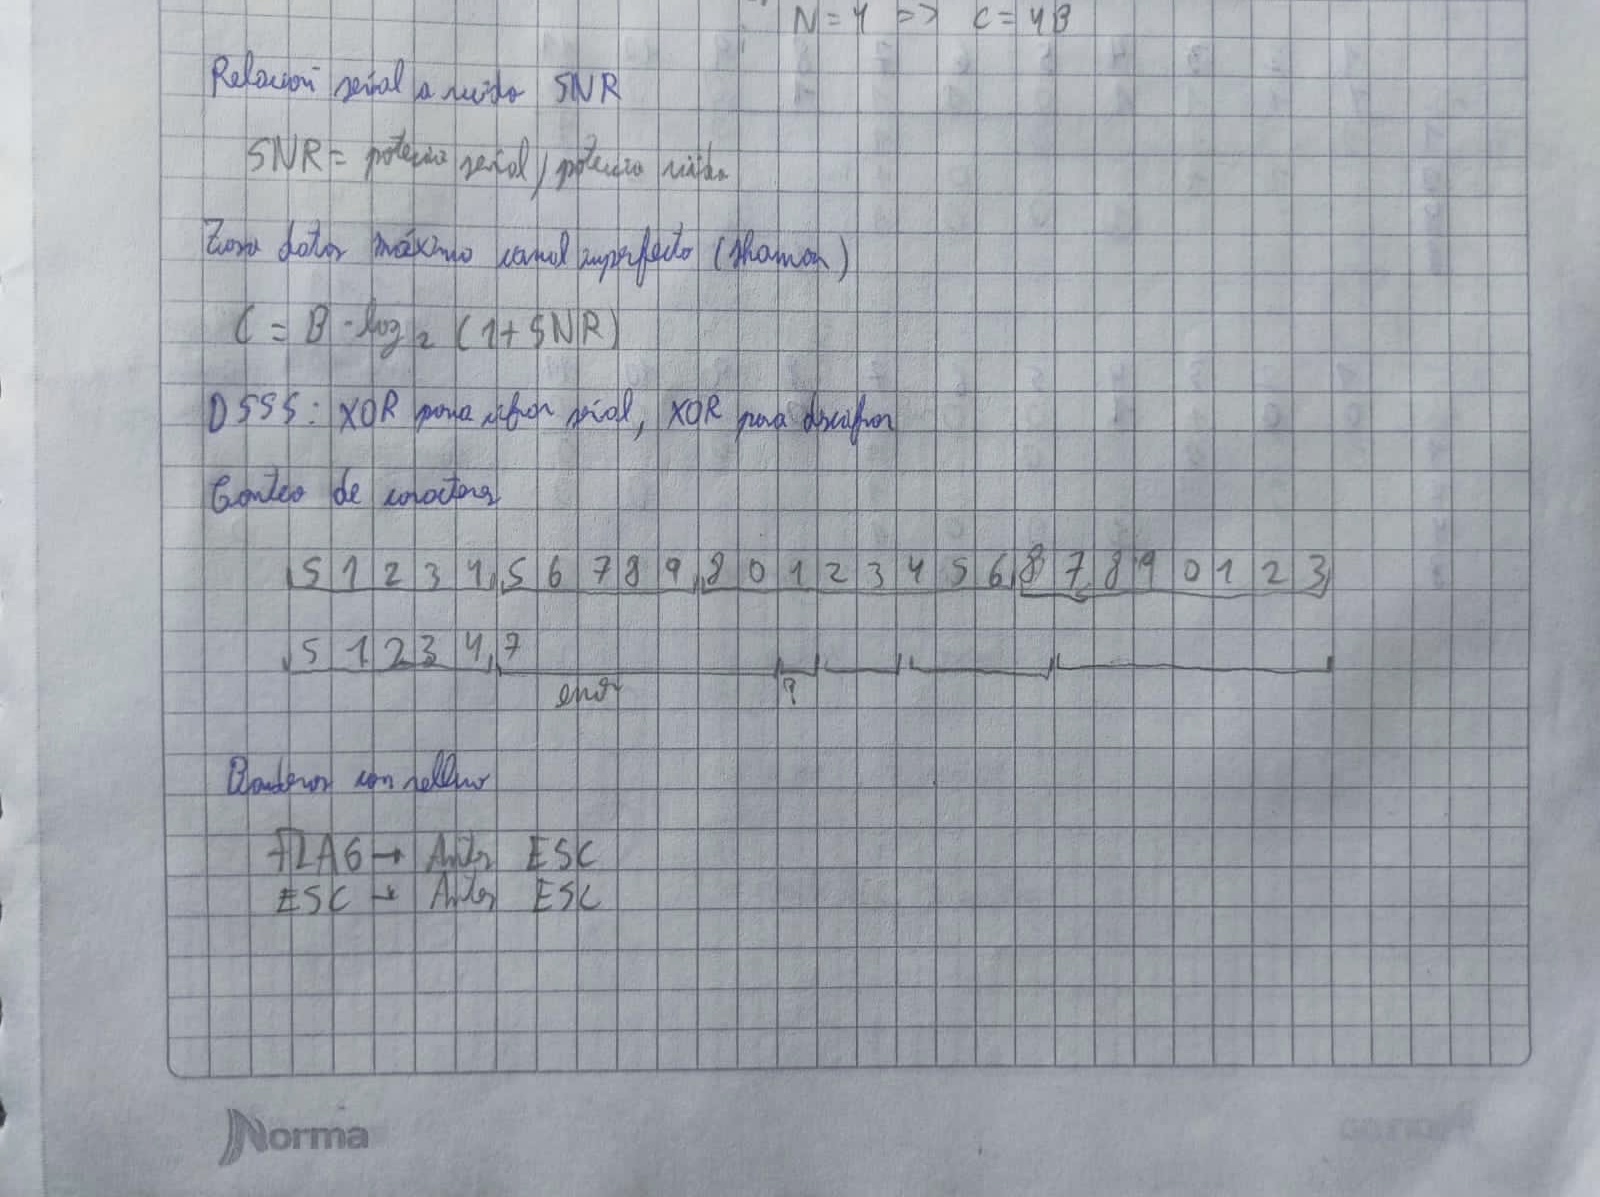 N = 4 => C = 4B
Relación señal a ruido SNR
SNR = potencia señal / potencia ruido
Tasa datos máximo canal imperfecto (Shannon)
C = B · log₂ (1 + SNR)
DSSS: XOR para cifrar señal, XOR para descifrar
Conteo de caracteres
5 1 2 3 4 5 6 7 8 9 8 0 1 2 3 4 5 6 8 7 8 9 0 1 2 3
5 1 2 3 4 7
error
?
Banderas con relleno
FLAG → Antes ESC
ESC → Antes ESC
Norma